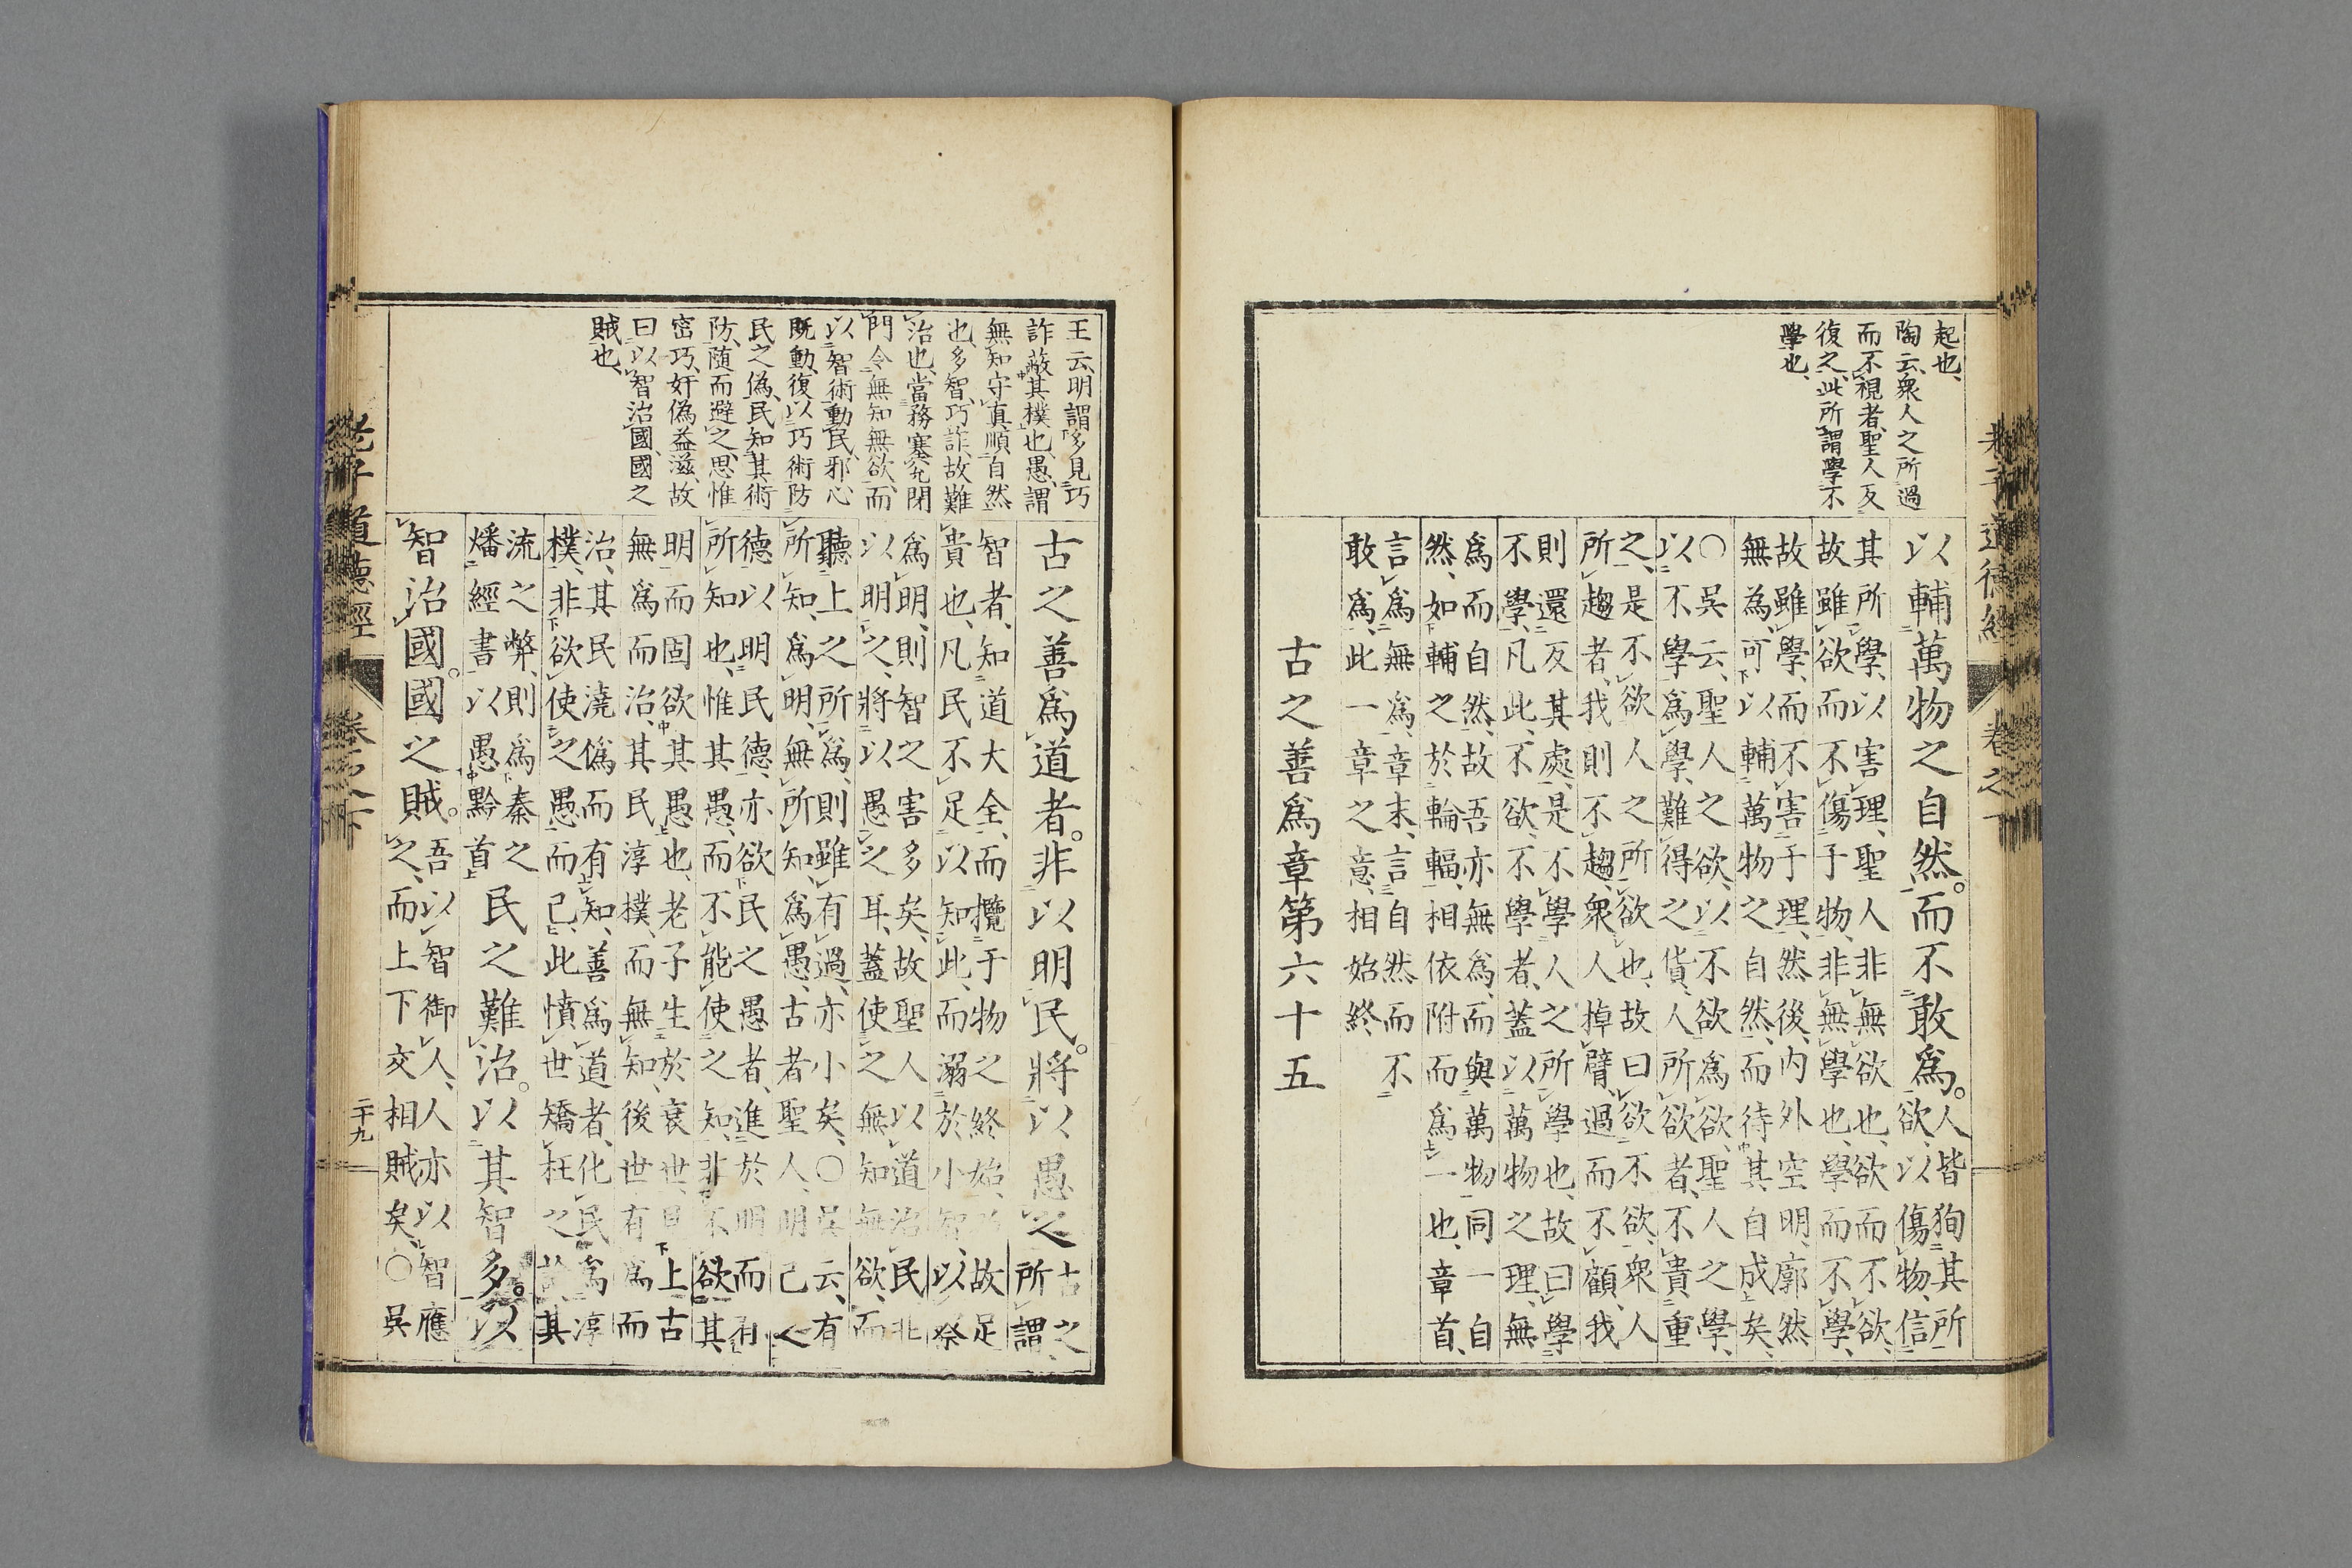 老子道德經
卷之下
起也、
陶云、衆人之所過
而不視者、聖人反
復之、此所謂學不
學也、
以輔萬物之自然。而不敢爲。
人皆狥其所
欲、以傷物、信
其所學、以害理、聖人非無欲也、欲而不欲、
故雖欲而不傷于物、非無學也、學而不學、
故雖學、而不害于理、然後、內外空明、廓然
無為可以輔萬物之自然、而待其自成矣、
〇吳云、聖人之欲、以不欲爲欲、聖人之學、
以不學爲學、難得之貨、人所欲者、不貴重
之、是不欲人之所欲也、故曰欲不欲、衆人
所趨者、我則不趨、衆人掉臂過而不顧、我
則還反其處、是不學人之所學也、故曰學
不學、凡此、不欲、不學者、蓋以萬物之理、無
爲而自然、故吾亦無爲、而與萬物同一自
然、如輔之於輪輻、相依附而爲一也、章首、
言爲無爲、章末、言自然而不
敢爲、此一章之意、相始終、
古之善爲章第六十五
王云、明謂多見巧
詐蔽其樸也、愚、謂
無知守眞、順自然
也、多智巧詐、故難
治也、當務塞兌閉
門令無知無欲、而
以智術動民、邪心
既動、復以巧術防
民之僞、民知其術
防、随而避之、思惟
密巧、奸僞益滋、故
曰、以智治國、國之
賊也、
古之善爲道者。非以明民。將以愚之
古之
所謂、
智者、知道大全、而攬于物之終始、故足
貴也、凡民不足以知此、而溺於小智、以察
爲明、則智之害多矣、故聖人以道治民非
以明之、將以愚之耳、蓋使之無知無欲、而
聽上之所爲、則雖有過、亦小矣、〇吳云、有
所知、爲明、無所知、爲愚、古者聖人、明己之
德、以明民德、亦欲民之愚者、進於明而有
所知也、惟其愚、而不能使之知、非不欲其
明而固欲其愚也、老子生於衰世、見上古
無爲而治、其民淳樸、而無知、後世有爲而
治、其民澆僞而有知、善爲道者、化民爲淳
樸、非欲使之愚而已、此憤世矯枉之其
流之弊、則爲秦之
燔經書以愚黔首
民之難治。以其智多。以
智治國。國之賊。
吾以智御人、人亦以智應
之、而上下交相賊矣、〇吳
老子道德經
卷之下
二十九